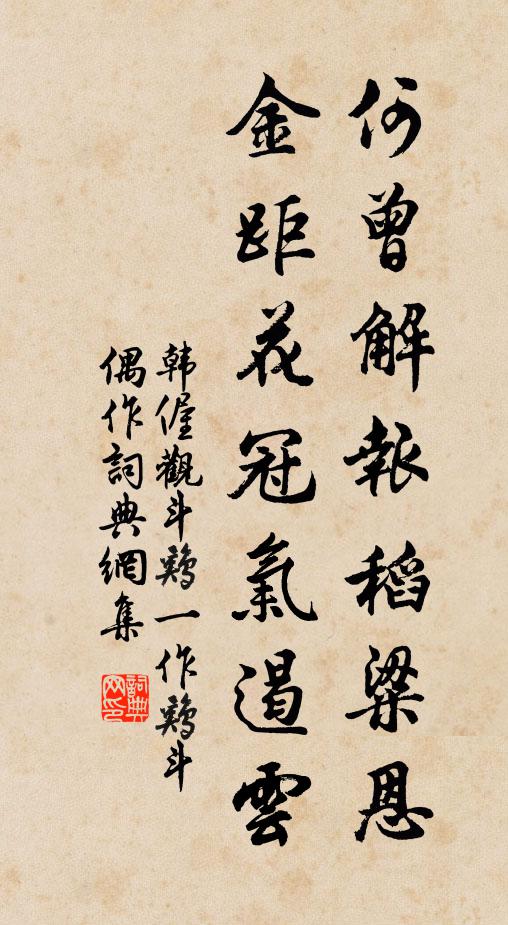 何曾解報稻粱恩
金距花冠氣遏雲
韩偓觀斗鷄一作鷄斗
偶作詞典網集
詞典
网印